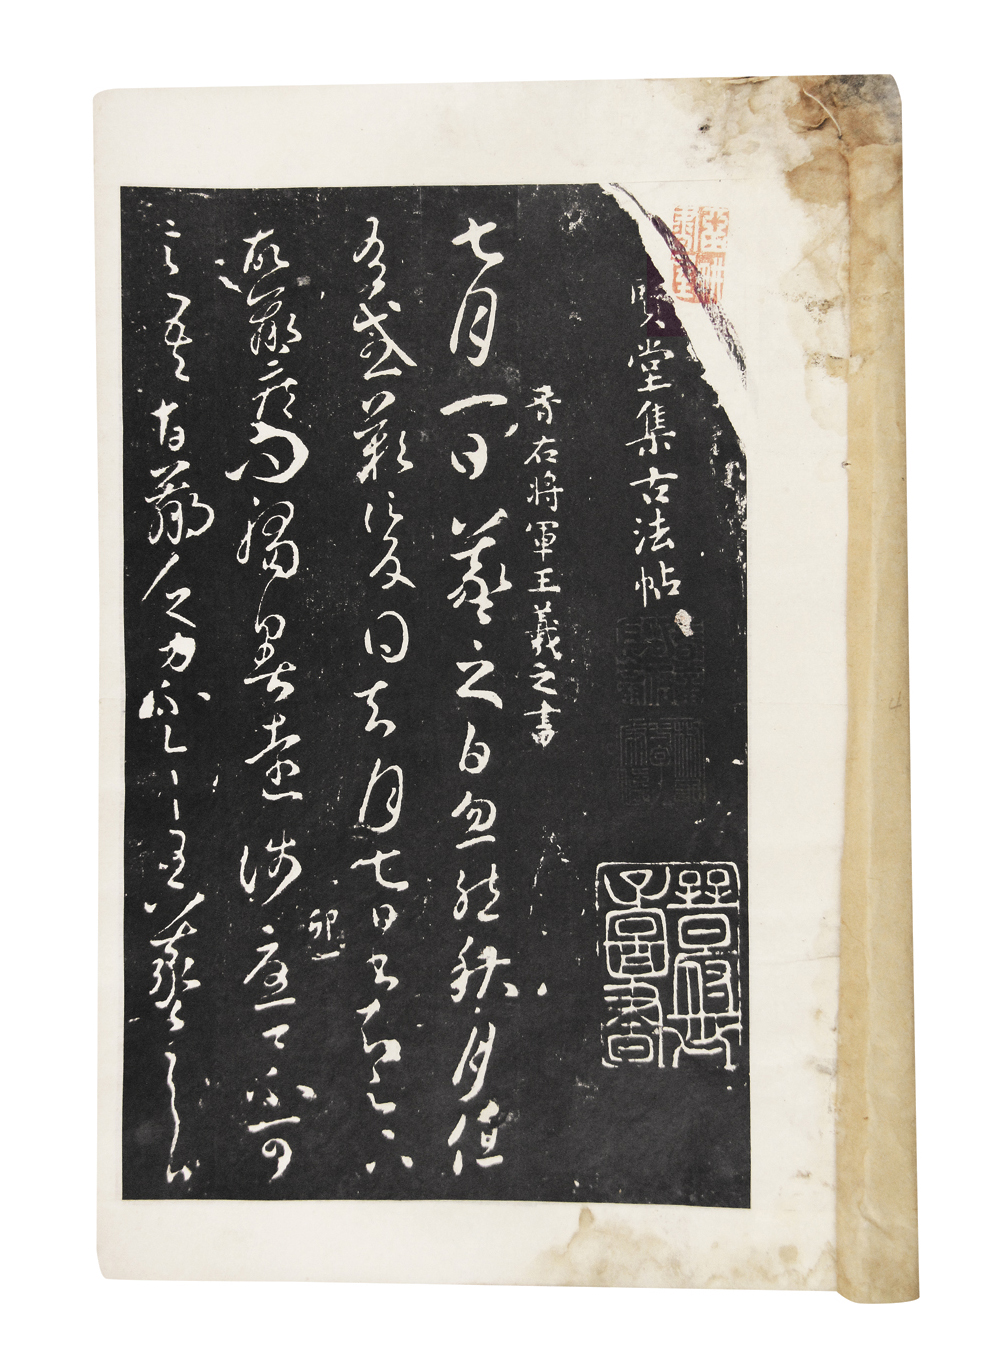 賢堂集古法帖
晉府世子圖書
晉右將軍王羲之書
七月一日羲之白忽然秋月但
有感歎信反得去月七日書知足下
故羸疾問觸暑遠涉憂卿不可
卯一
言吾故羸乏力不具王羲之白